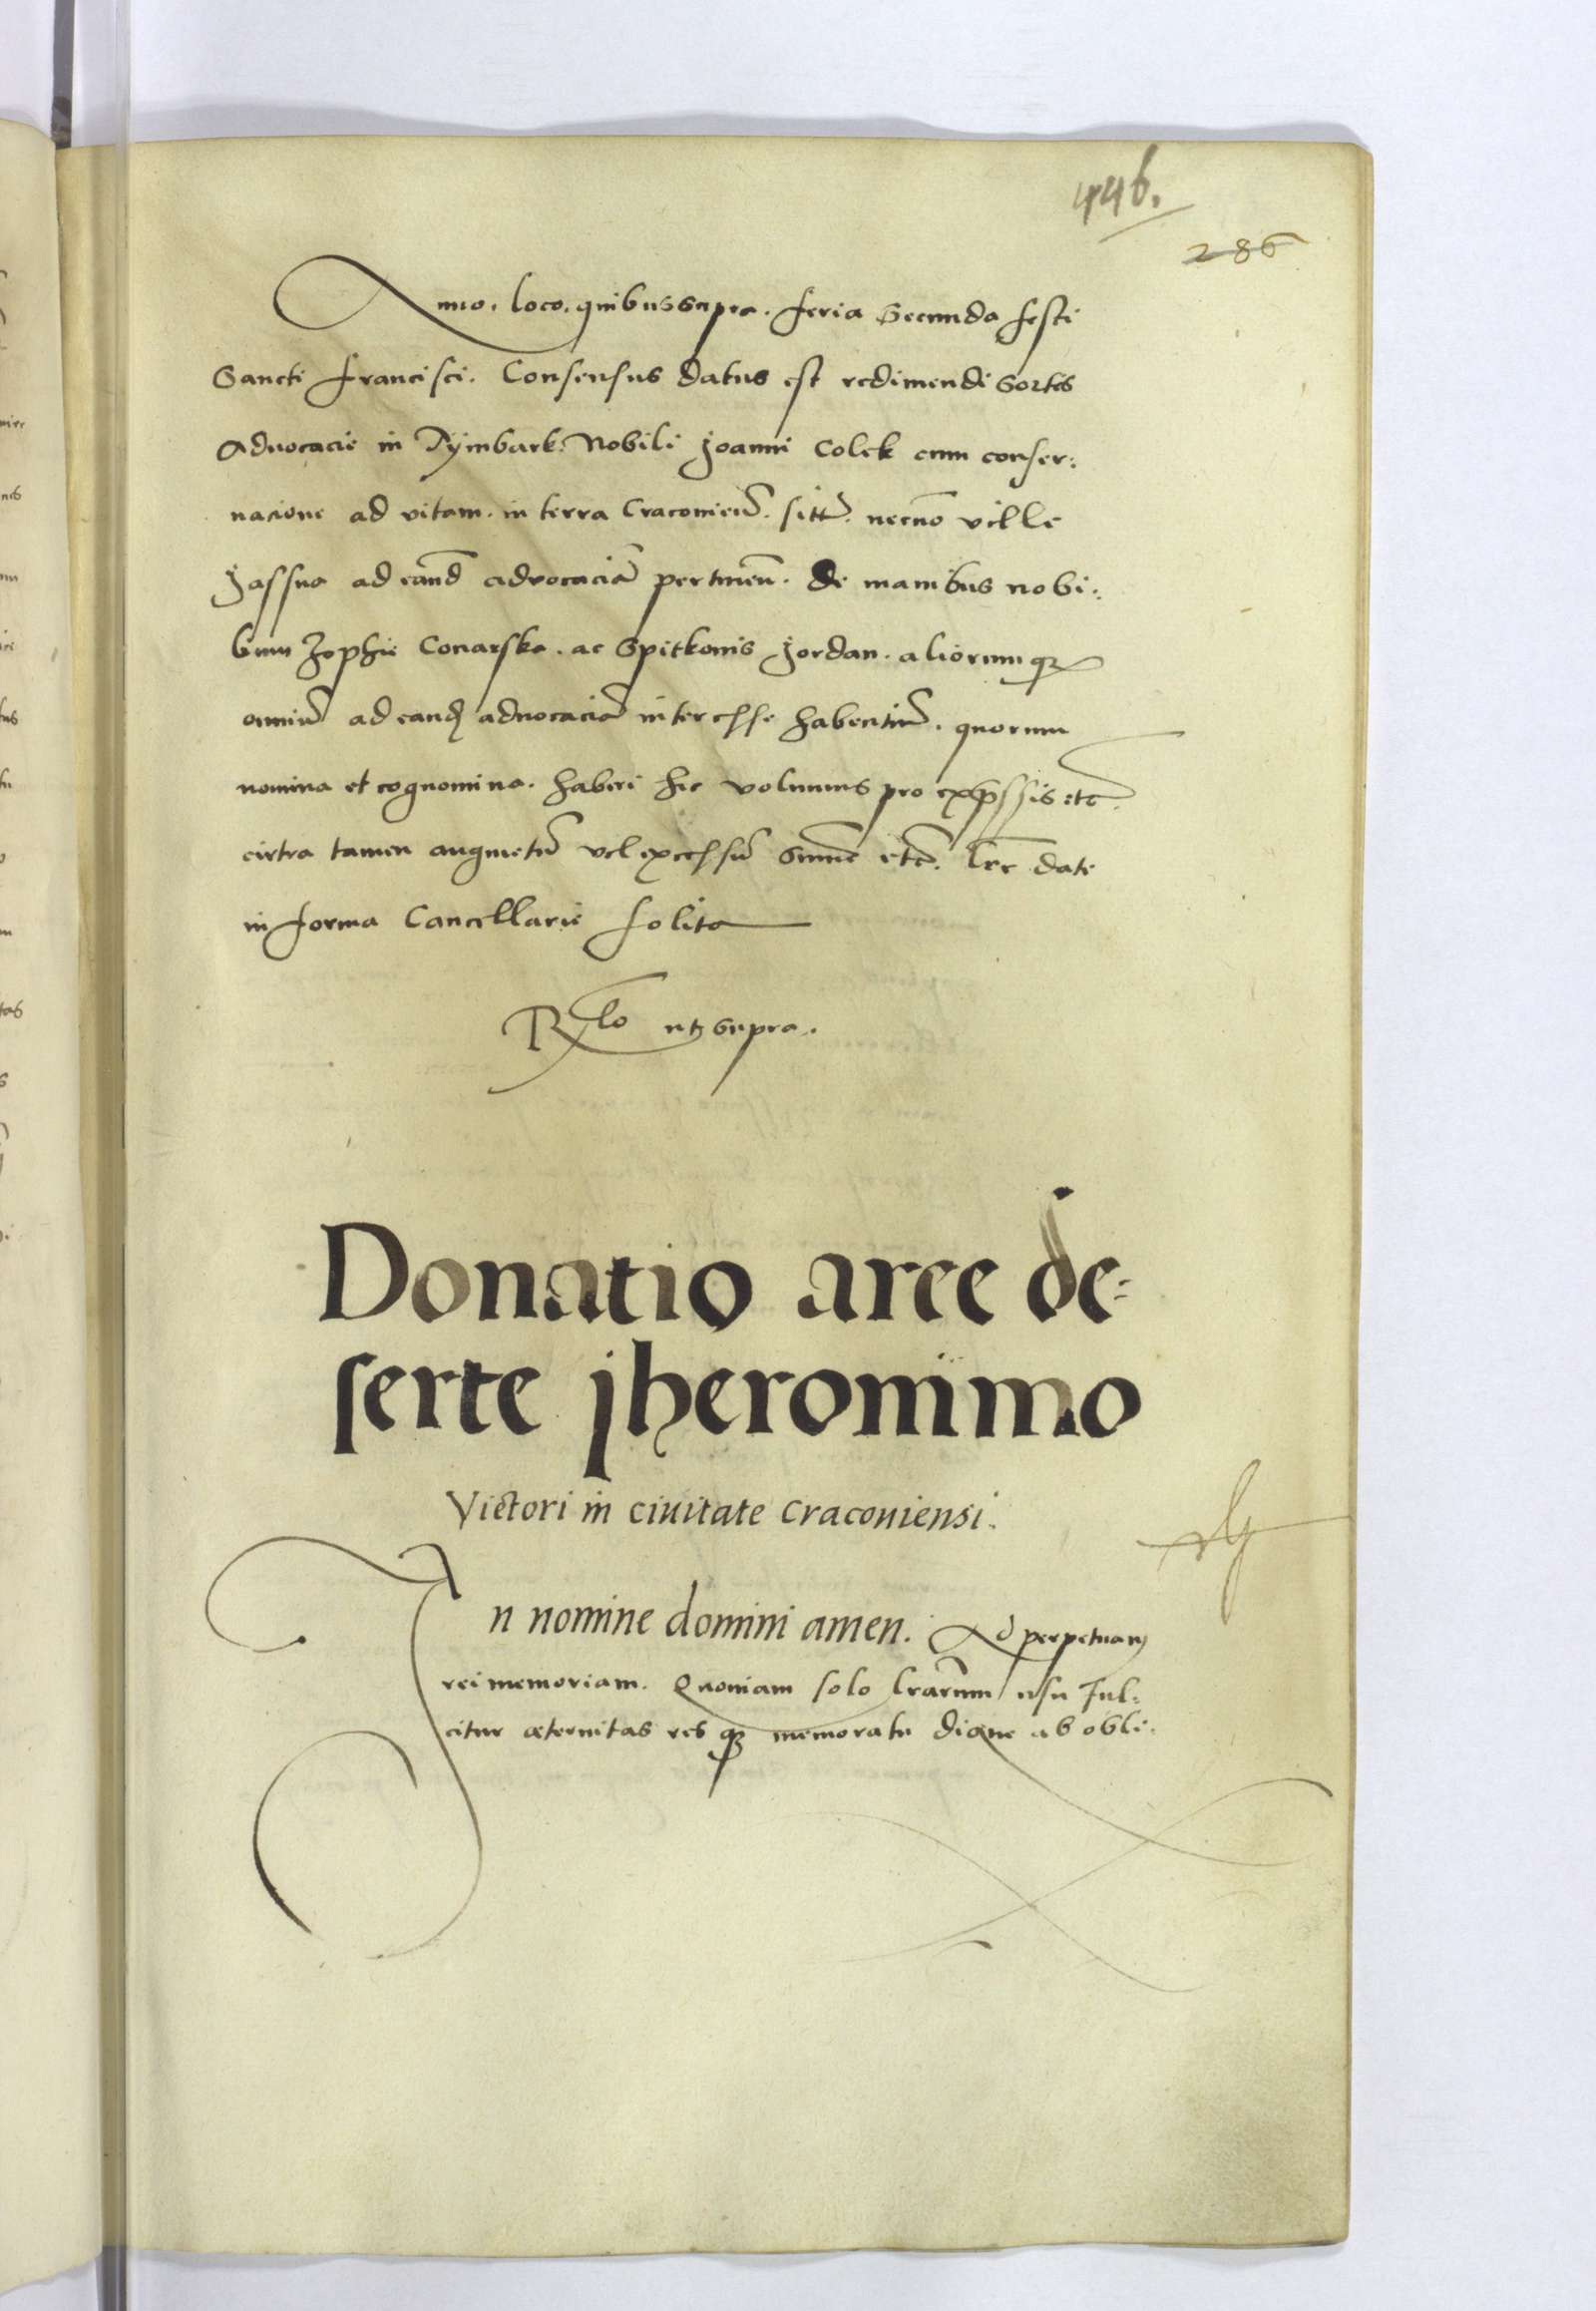 446.
286
Anno. loco. quibus supra. feria Secunda festi
Sancti Francisci. Consensus datus est redimendi Sortes
Aduocacie in Tymbark. Nobili Joanni Colek cum conser:
uacione ad vitam. in terra Cracouien̄. sitt̄. necnō ville
Jassna ad eand̄ advocaciā pertinen̄. de manibus nobi:
lium Zophie Conarska. ac Spitkonis Jordan. aliorumq3
omniū ad eand̄ aduocaciā interesse habentiū. quorum
nomina et cognomina. haberi hic volumus pro expssis etc̄.
citra tamen augmetū vel excessū sum̄e etc̄. lr̄e date
in forma Cancellarie solita
Rlo ut supra.
Donatio aree de=
serte jheronimo
Victori in ciuitate Cracouiensi.
In nomine domini amen. Ad perpetuam
rei memoriam. Quoniam solo lrarum̄ usu ful:
citur æternitas res q3 memoratu digne ab obli: